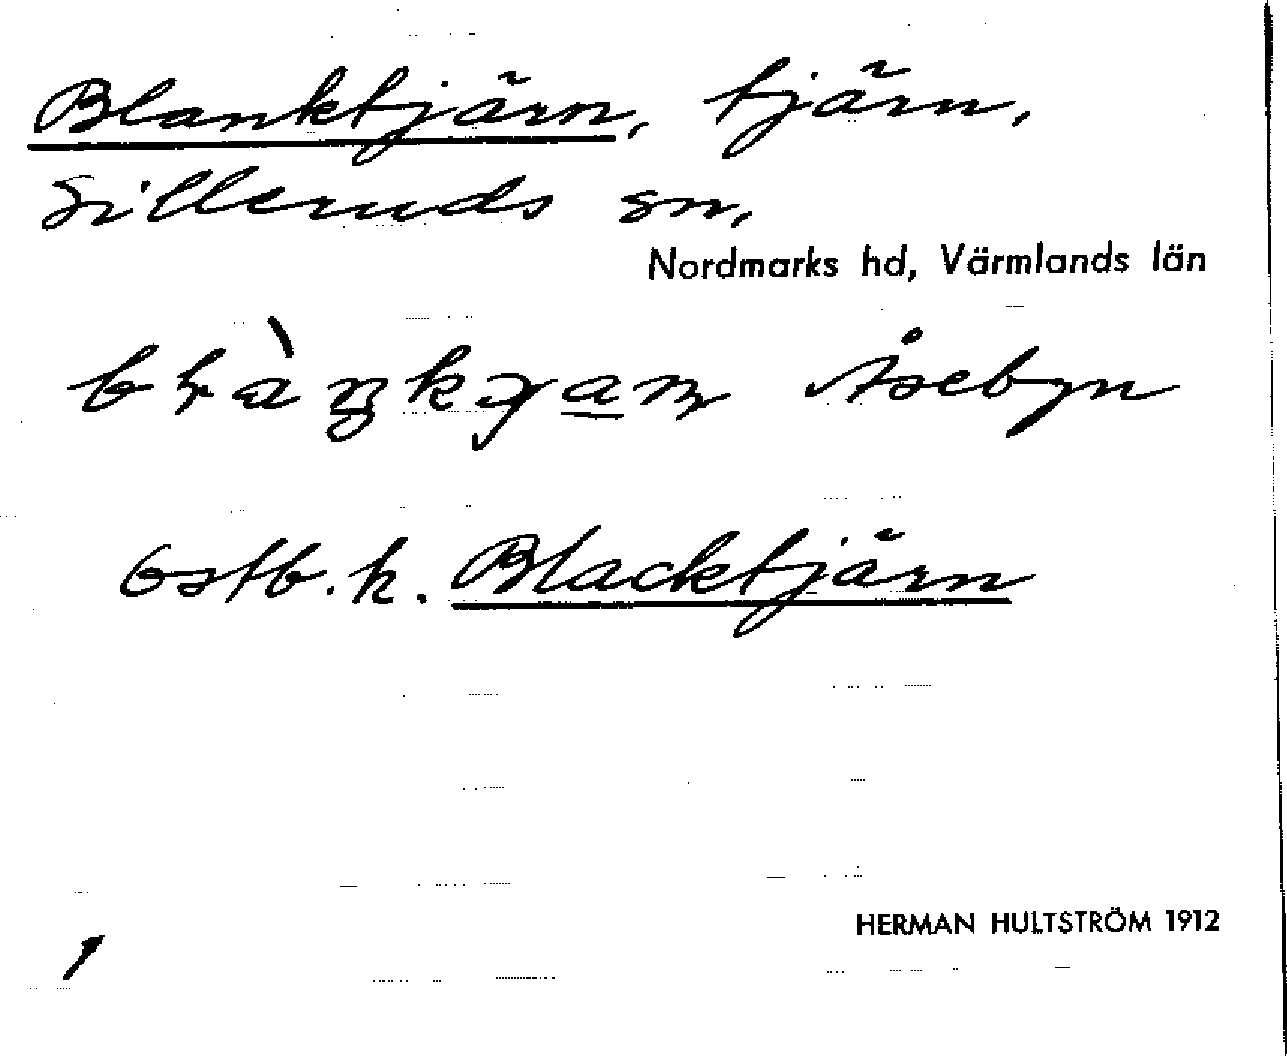 Blanktjärn, tjärn,
Silleruds sn,
Nordmarks hd, Värmlands län
Åsebyn
Blacktjärn
HERMAN HULTSTRÖM 1912